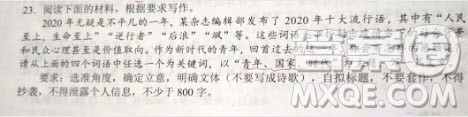 23. 阅读下面的材料，根据要求写作。
2020年无疑是不平凡的一年，某杂志编辑部发布了2020年十大流行语，其中有“人民
至上，生命至上”“逆行者”“后浪”“飒”等。这些词语
和民众心理甚至是价值取向。作为新时代的青年，回首过去的
请从上面的四个词语中任选一个为关键词，以“青年、国家
要求：选准角度，确定立意，明确文体（不要写成诗歌），自拟标题，不要套作，不得
抄袭，不得泄露个人信息，不少于800字。